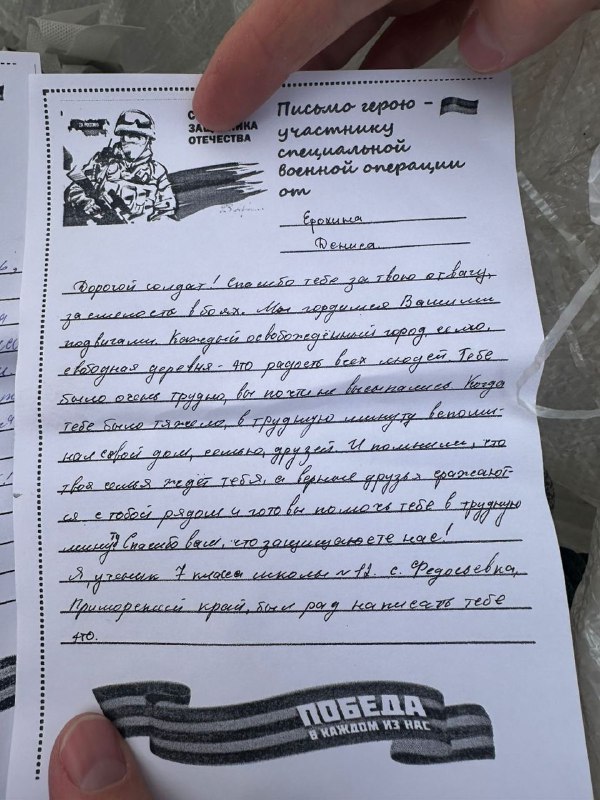 ЗАЩИТНИКА
ОТЕЧЕСТВА
Письмо герою -
участнику
специальной
военной операции
от
Ерохина
Дениса
Дорогой солдат! Спасибо тебе за твою отвагу,
за смелость в боях. Мы гордимся Вашими
подвигами. Каждый освобождённый город, село,
свободная деревня - это радость всех людей. Тебе
было очень трудно, вы почти не высыпались. Когда
тебе было тяжело, в трудную минуту вспоми-
нал свой дом, семью, друзей. И помнили, что
твоя семья ждёт тебя, а верные друзья сражают
ся с тобой рядом и готовы помочь тебе в трудную
минуту Спасибо вам, что защищаете нас!
Я ученик 7 класса школы №12 с. Федосьевка,
Приморский край, был рад написать тебе
это.
ПОБЕДА
В КАЖДОМ ИЗ НАС